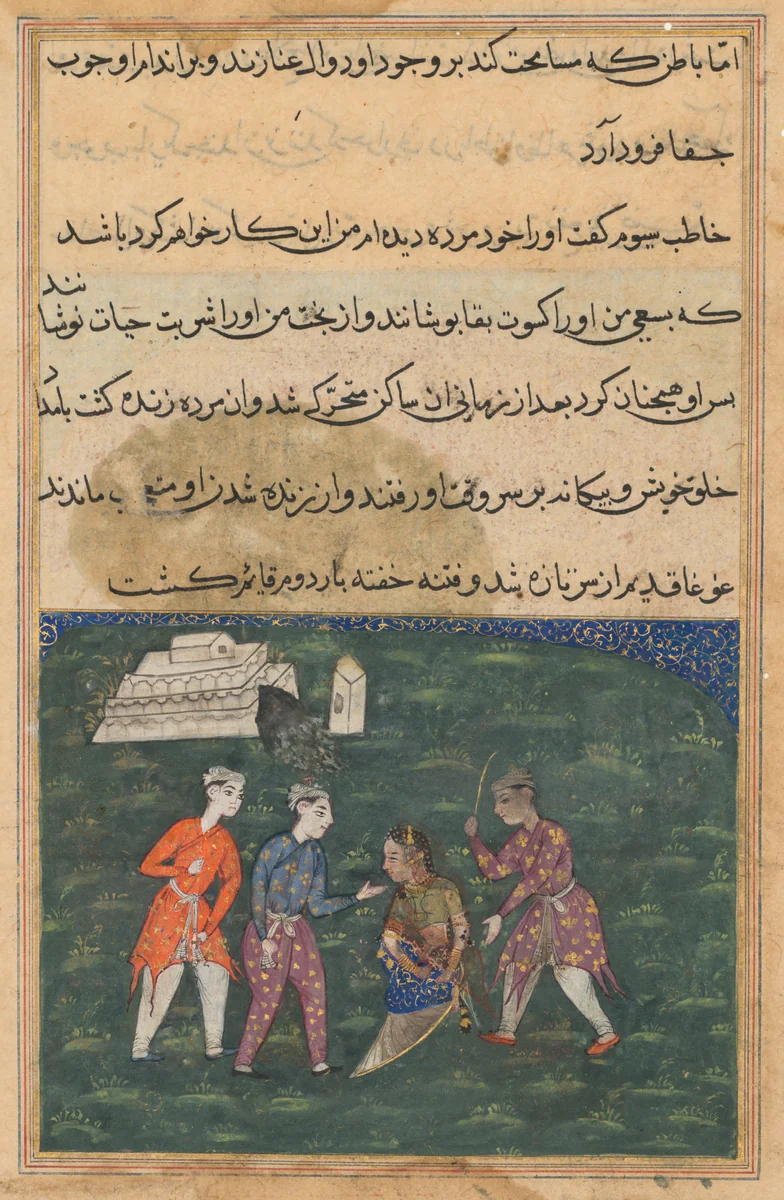 امّا باطن که مسامحت کند بر وجود او دوال عنا زند و بر اندام او چوب
جفا فرود آرد
خاطب سیوم گفت او را خود مرده دیده ام من این کار خواهم کرد باشد
که بسعی من او را کسوت بقا بپوشانند و از بخت من او را شربت حیات نوشا
نند
بس او همچنان کرد بعد از زمانی ان ساکن متحرّک شد و ان مرده زنده کشت بامداد
خلق خویش و بیکانه بر سر وقت او رفتند و از زنده شدن او متعجب ماندند
غوغا قدیم از سر تازه شد و فتنه خفته بار دوم قایم کشت